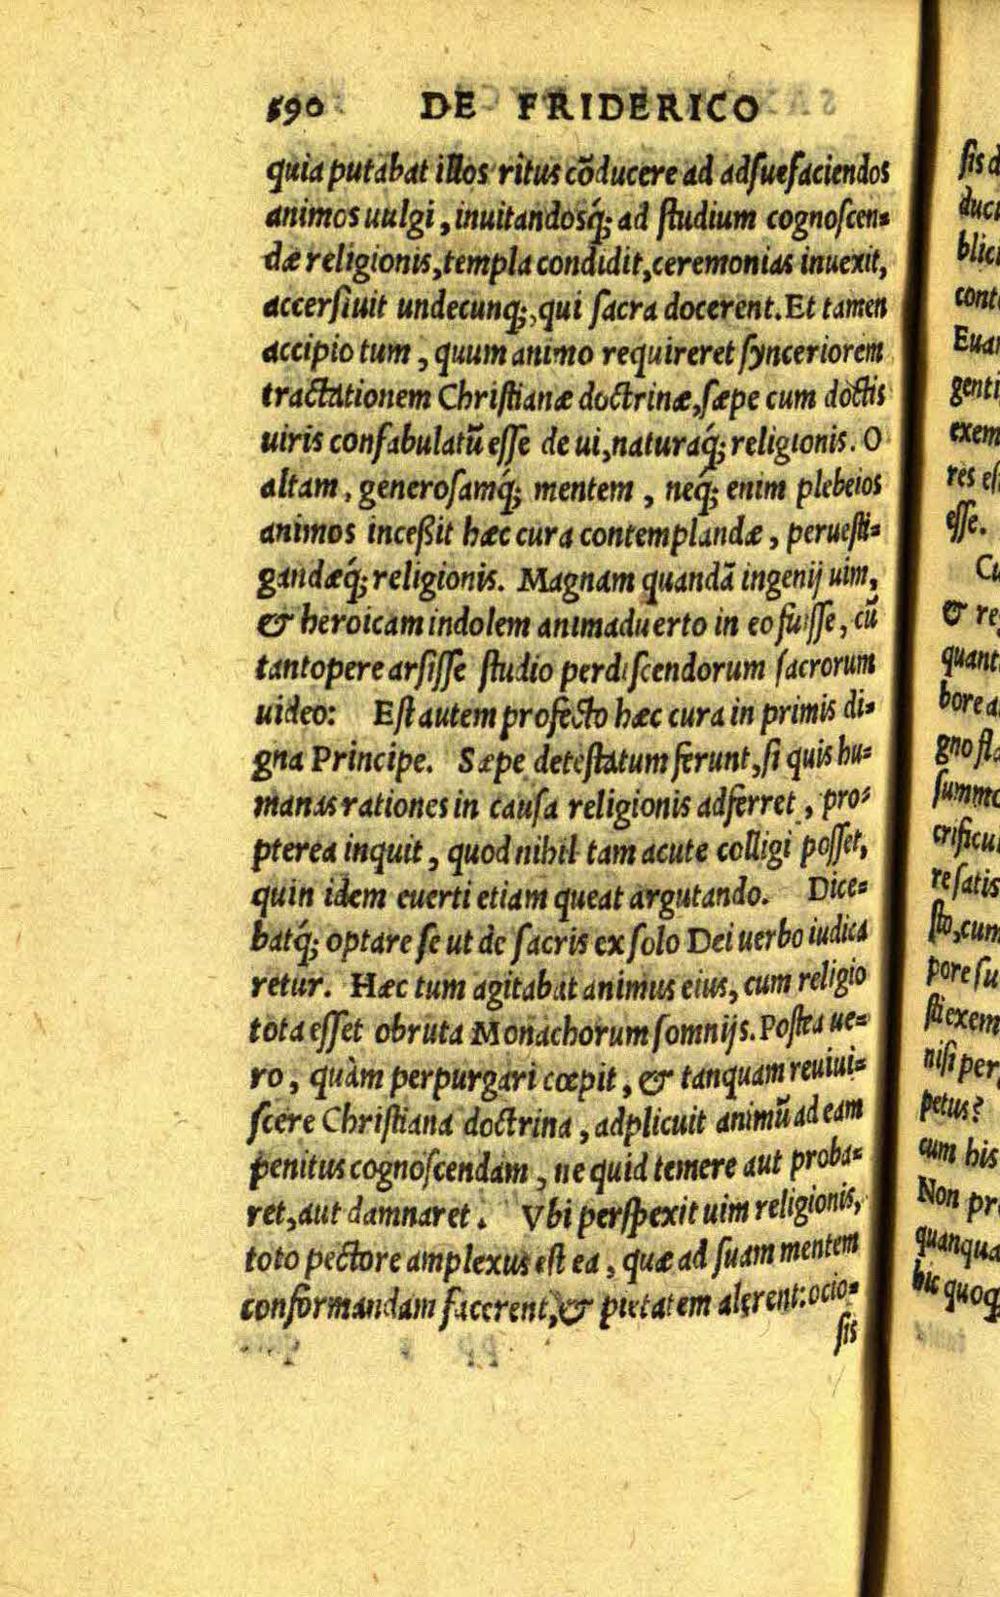 590 DE FRIDERICO
quia putabat illos ritus cõducere ad adſuefaciendos
animos uulgi, inuitandosq́; ad ſtudium cognoſcen-
dæ religionis, templa condidit, ceremonias inuexit,
accerſiuit undecunq;, qui ſacra docerent. Et tamen
accipio tum, quum animo requireret ſynceriorem
tractationem Chriſtianæ doctrinæ, ſæpe cum doctis
uiris confabulatũ eſſe de ui, naturaq́; religionis. O
altam, generoſamq́; mentem, neq; enim plebeios
animos inceßit hæc cura contemplandæ, perueſti-
gandæq́; religionis. Magnam quandã ingenij uim,
& heroicam indolem animaduerto in eo fuiſſe, cũ
tantopere arſiſſe ſtudio perdiſcendorum ſacrorum
uideo: Eſt autem profecto hæc cura in primis di-
gna Principe. Sæpe deteſtatum ferunt, ſi quis hu-
manas rationes in cauſa religionis adferret, pro-
pterea inquit, quod nihil tam acute colligi poſſet,
quin idem euerti etiam queat argutando. Dice-
batq́; optare ſe ut de ſacris ex ſolo Dei uerbo iudica
retur. Hæc tum agitabat animus eius, cum religio
tota eſſet obruta Monachorum ſomnijs. Poſtea ue-
ro, quàm perpurgari cœpit, & tanquam reuiui-
ſcere Chriſtiana doctrina, adplicuit animũ ad eam
penitus cognoſcendam, ne quid temere aut proba-
ret, aut damnaret. Vbi perſpexit uim religionis,
toto pectore amplexus eſt ea, quæ ad ſuam mentem
conformandam facerent, & pietatem alerent: ocio-
ſis
ſis d
duc
blic
cont
Eua
genti
exem
res eſ
eſſe.
Cu
& re
quant
bore a
gno fla
ſummo
crificu
re ſatis
ſto, cum
pore ſu
ſti exem
niſi per
petus?
cum his
Non pr
quanqua
hic quoq